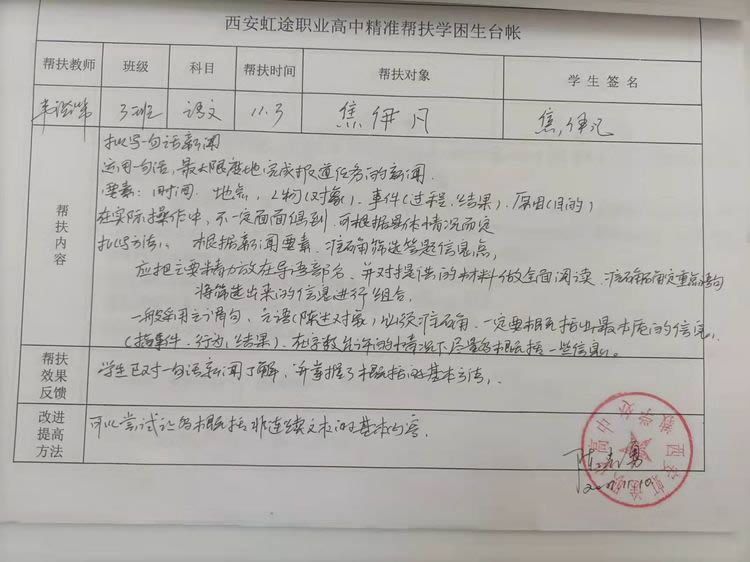 西安虹途职业高中精准帮扶学困生台帐
帮扶教师 班级 科目 帮扶时间 帮扶对象 学生签名
3班 语文 11.3 焦伊凡 焦伊凡
帮扶内容
拟写一句话新闻
运用一句话,最大限度地完成报道任务的新闻.
要素:时间.地点,人物(对象).事件(过程.结果).原因(目的)
在实际操作中,不一定面面俱到.可根据具体情况而定
拟写方法:根据新闻要素.准确筛选答题信息点,
应把主要精力放在导语部分.并对提供的材料做全面阅读.准确确定重点语句
将筛选出来的信息进行组合.
一般采用主谓句,主语(陈述对象)必须准确.一定要概括出最本质的信息.
(指事件.行为,结果).在字数允许的情况下尽量多概括一些信息.
帮扶效果反馈
学生已对一句话新闻了解,并掌握了概括的基本方法.
改进提高方法
可以尝试让多概括非连续文本的基本内容.
西安虹途职业高中
教学处